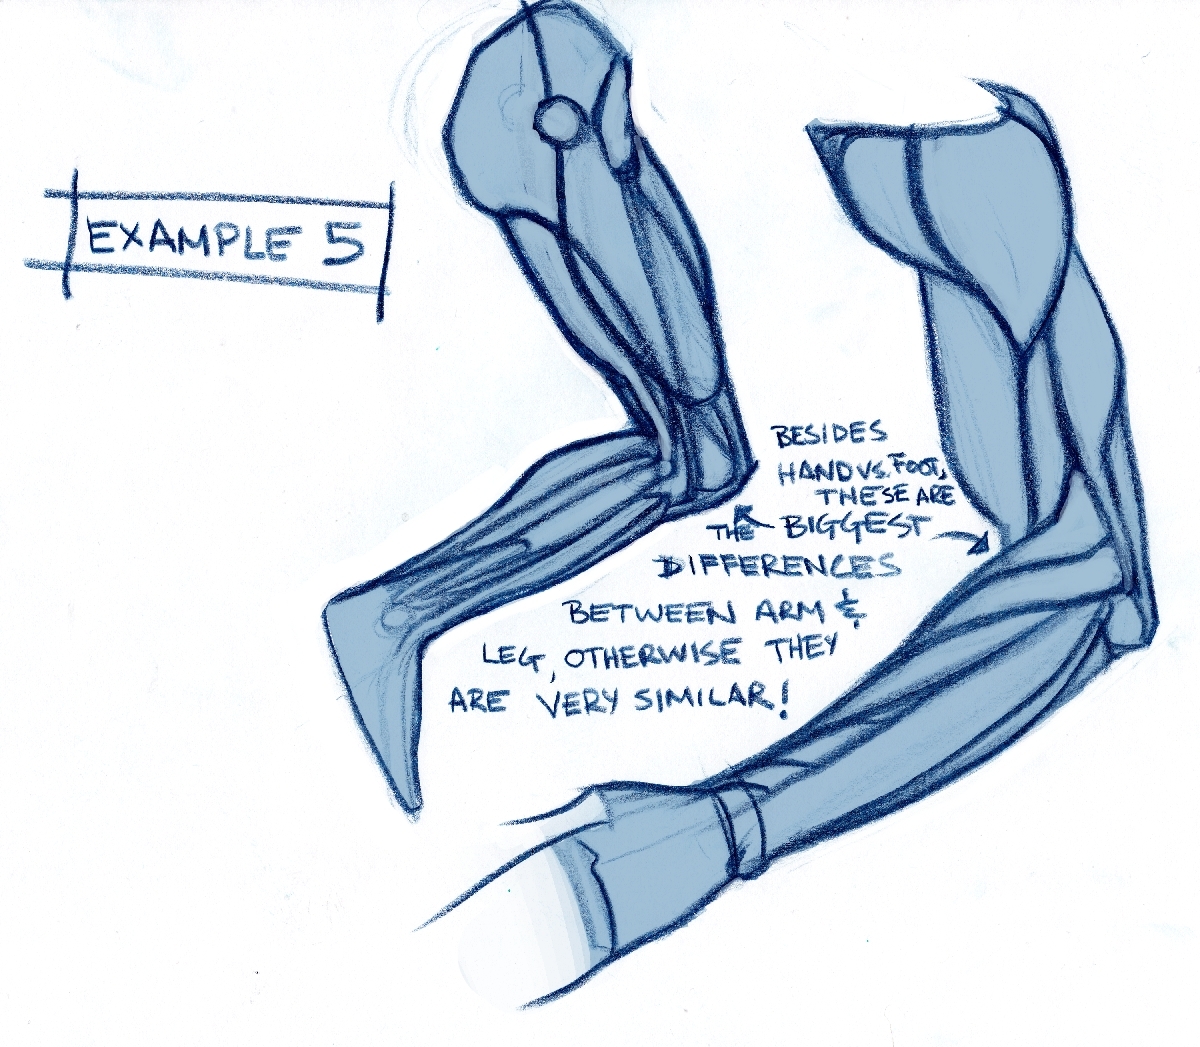 EXAMPLE 5
BESIDES
HAND VS. FOOT,
THESE ARE
THE BIGGEST
DIFFERENCES
BETWEEN ARM &
LEG, OTHERWISE THEY
ARE VERY SIMILAR!